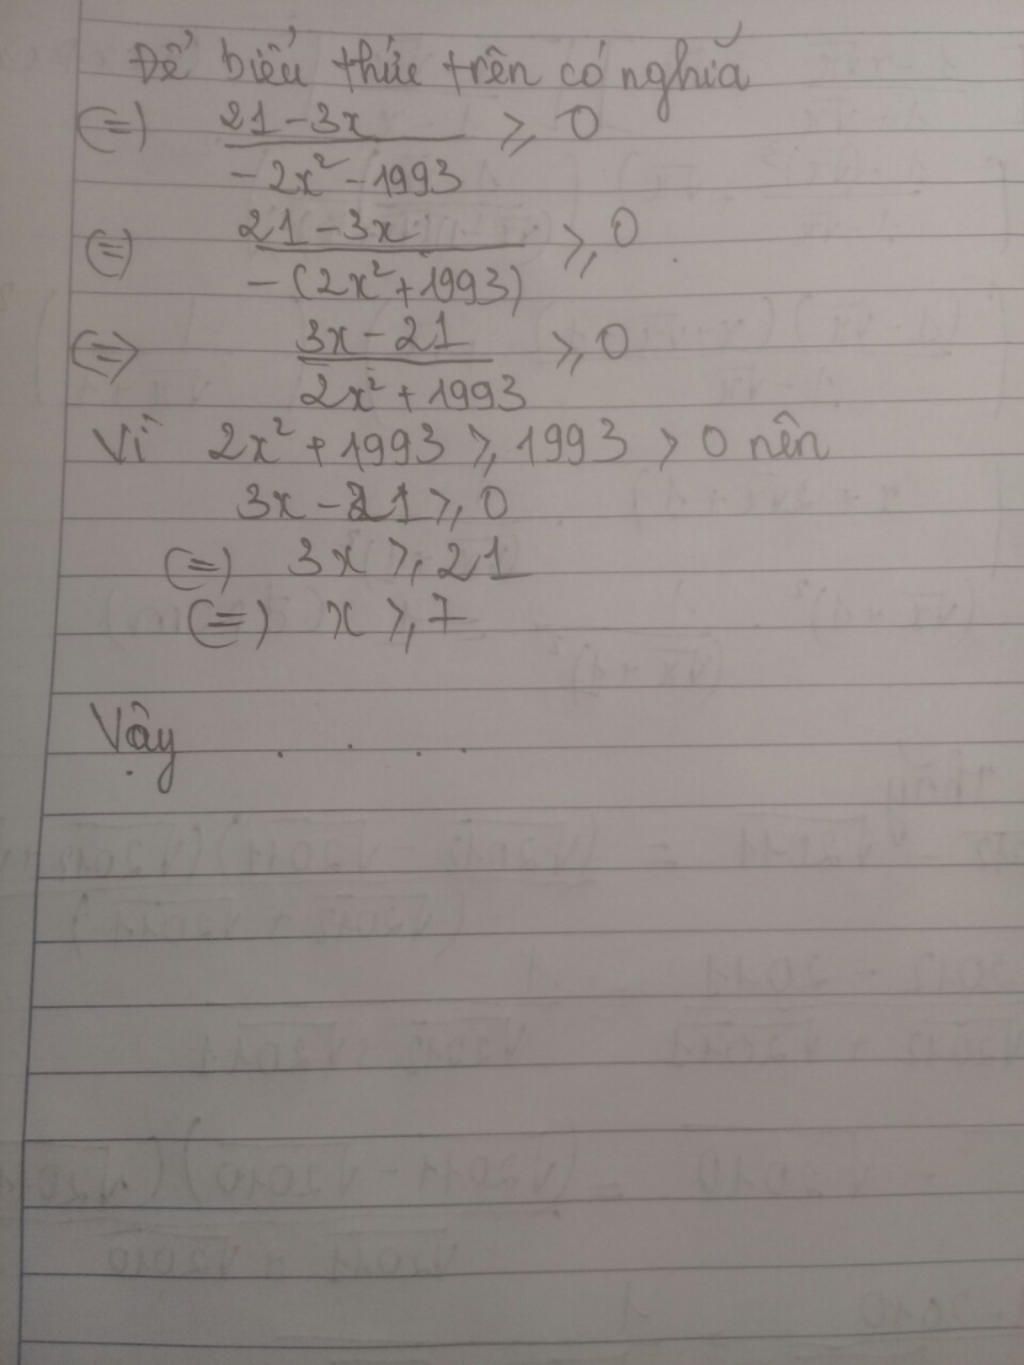 Để biểu thức trên có nghĩa
(=) 21-3x / -2x² - 1993 ≥ 0
(=) 21-3x / -(2x²+1993) ≥ 0
<=> 3x-21 / 2x²+1993 ≥ 0
Vì 2x² + 1993 ≥ 1993 > 0 nên
3x - 21 ≥ 0
(=) 3x ≥ 21
(=) x ≥ 7
Vậy . . . .